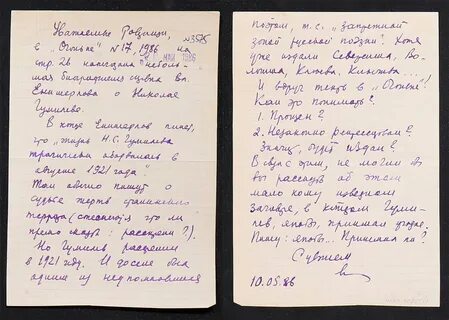 Уважаемые товарищи,
№3585
в "Огоньке" №17, 1986 на
стр. 26 напечатана небольшая
биографическая справка Вл.
Енишерлова о Николае
Гумилеве.
В конце Енишерлов пишет,
что "жизнь Н.С. Гумилева
трагически оборвалась в
августе 1921 года".
Так обычно пишут о
судьбе жертв сталинского
террора (стесняются что ли
прямо сказать: расстрелян?).
Но Гумилев расстрелян
в 1921 году. И доселе был
одним из неупоминаемых
поэтом, т.е. "запретной
зоной русской поэзии". Хотя
уже издали Северянина, Волошина,
Клюева,
И вдруг текст в "Огоньке".
Как это понимать?
1. Прощен?
2. Незаконно репрессирован?
Значит, будет издан?
В связи с этим, не могли бы
вы рассказать об этом
мало кому известном
заговоре, в котором Гумилев,
якобы, принимал участие.
Пишу: якобы... Принимал ли?
С уважением
10.05.86